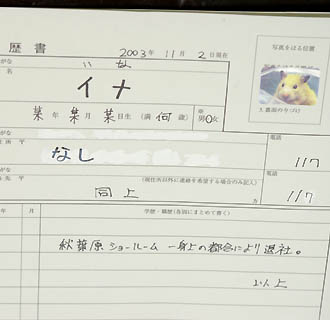 歴書 2003年 11月 2日現在
写真をはる位置
がな いな
名 イナ
某年 某月 某日生 (満 何 歳) ※ 男○女
がな 電話
住所 〒 なし 117
がな 電話
先 〒 (現住所以外に連絡を希望する場合のみ記入)
同上 方 117
年 月 学歴・職歴(各別にまとめて書く)
秋葉原ショールーム 一身上の都合により退社。
以上